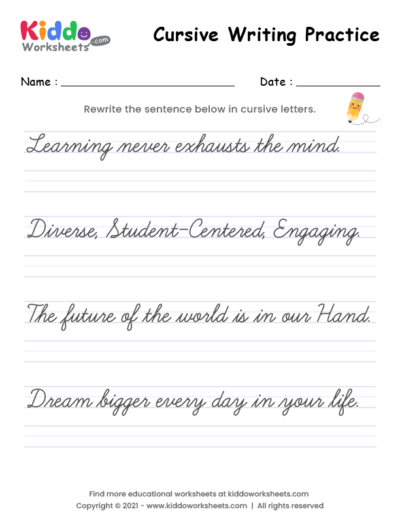 Kiddo
Worksheets.com
Cursive Writing Practice
Name : Date :
Rewrite the sentence below in cursive letters.
Learning never exhausts the mind.
Diverse, Student-Centered, Engaging.
The future of the world is in our Hand.
Dream bigger every day in your life.
Find more educational worksheets at kiddoworksheets.com
Copyright © 2021 - www.kiddoworksheets.com | All rights reserved